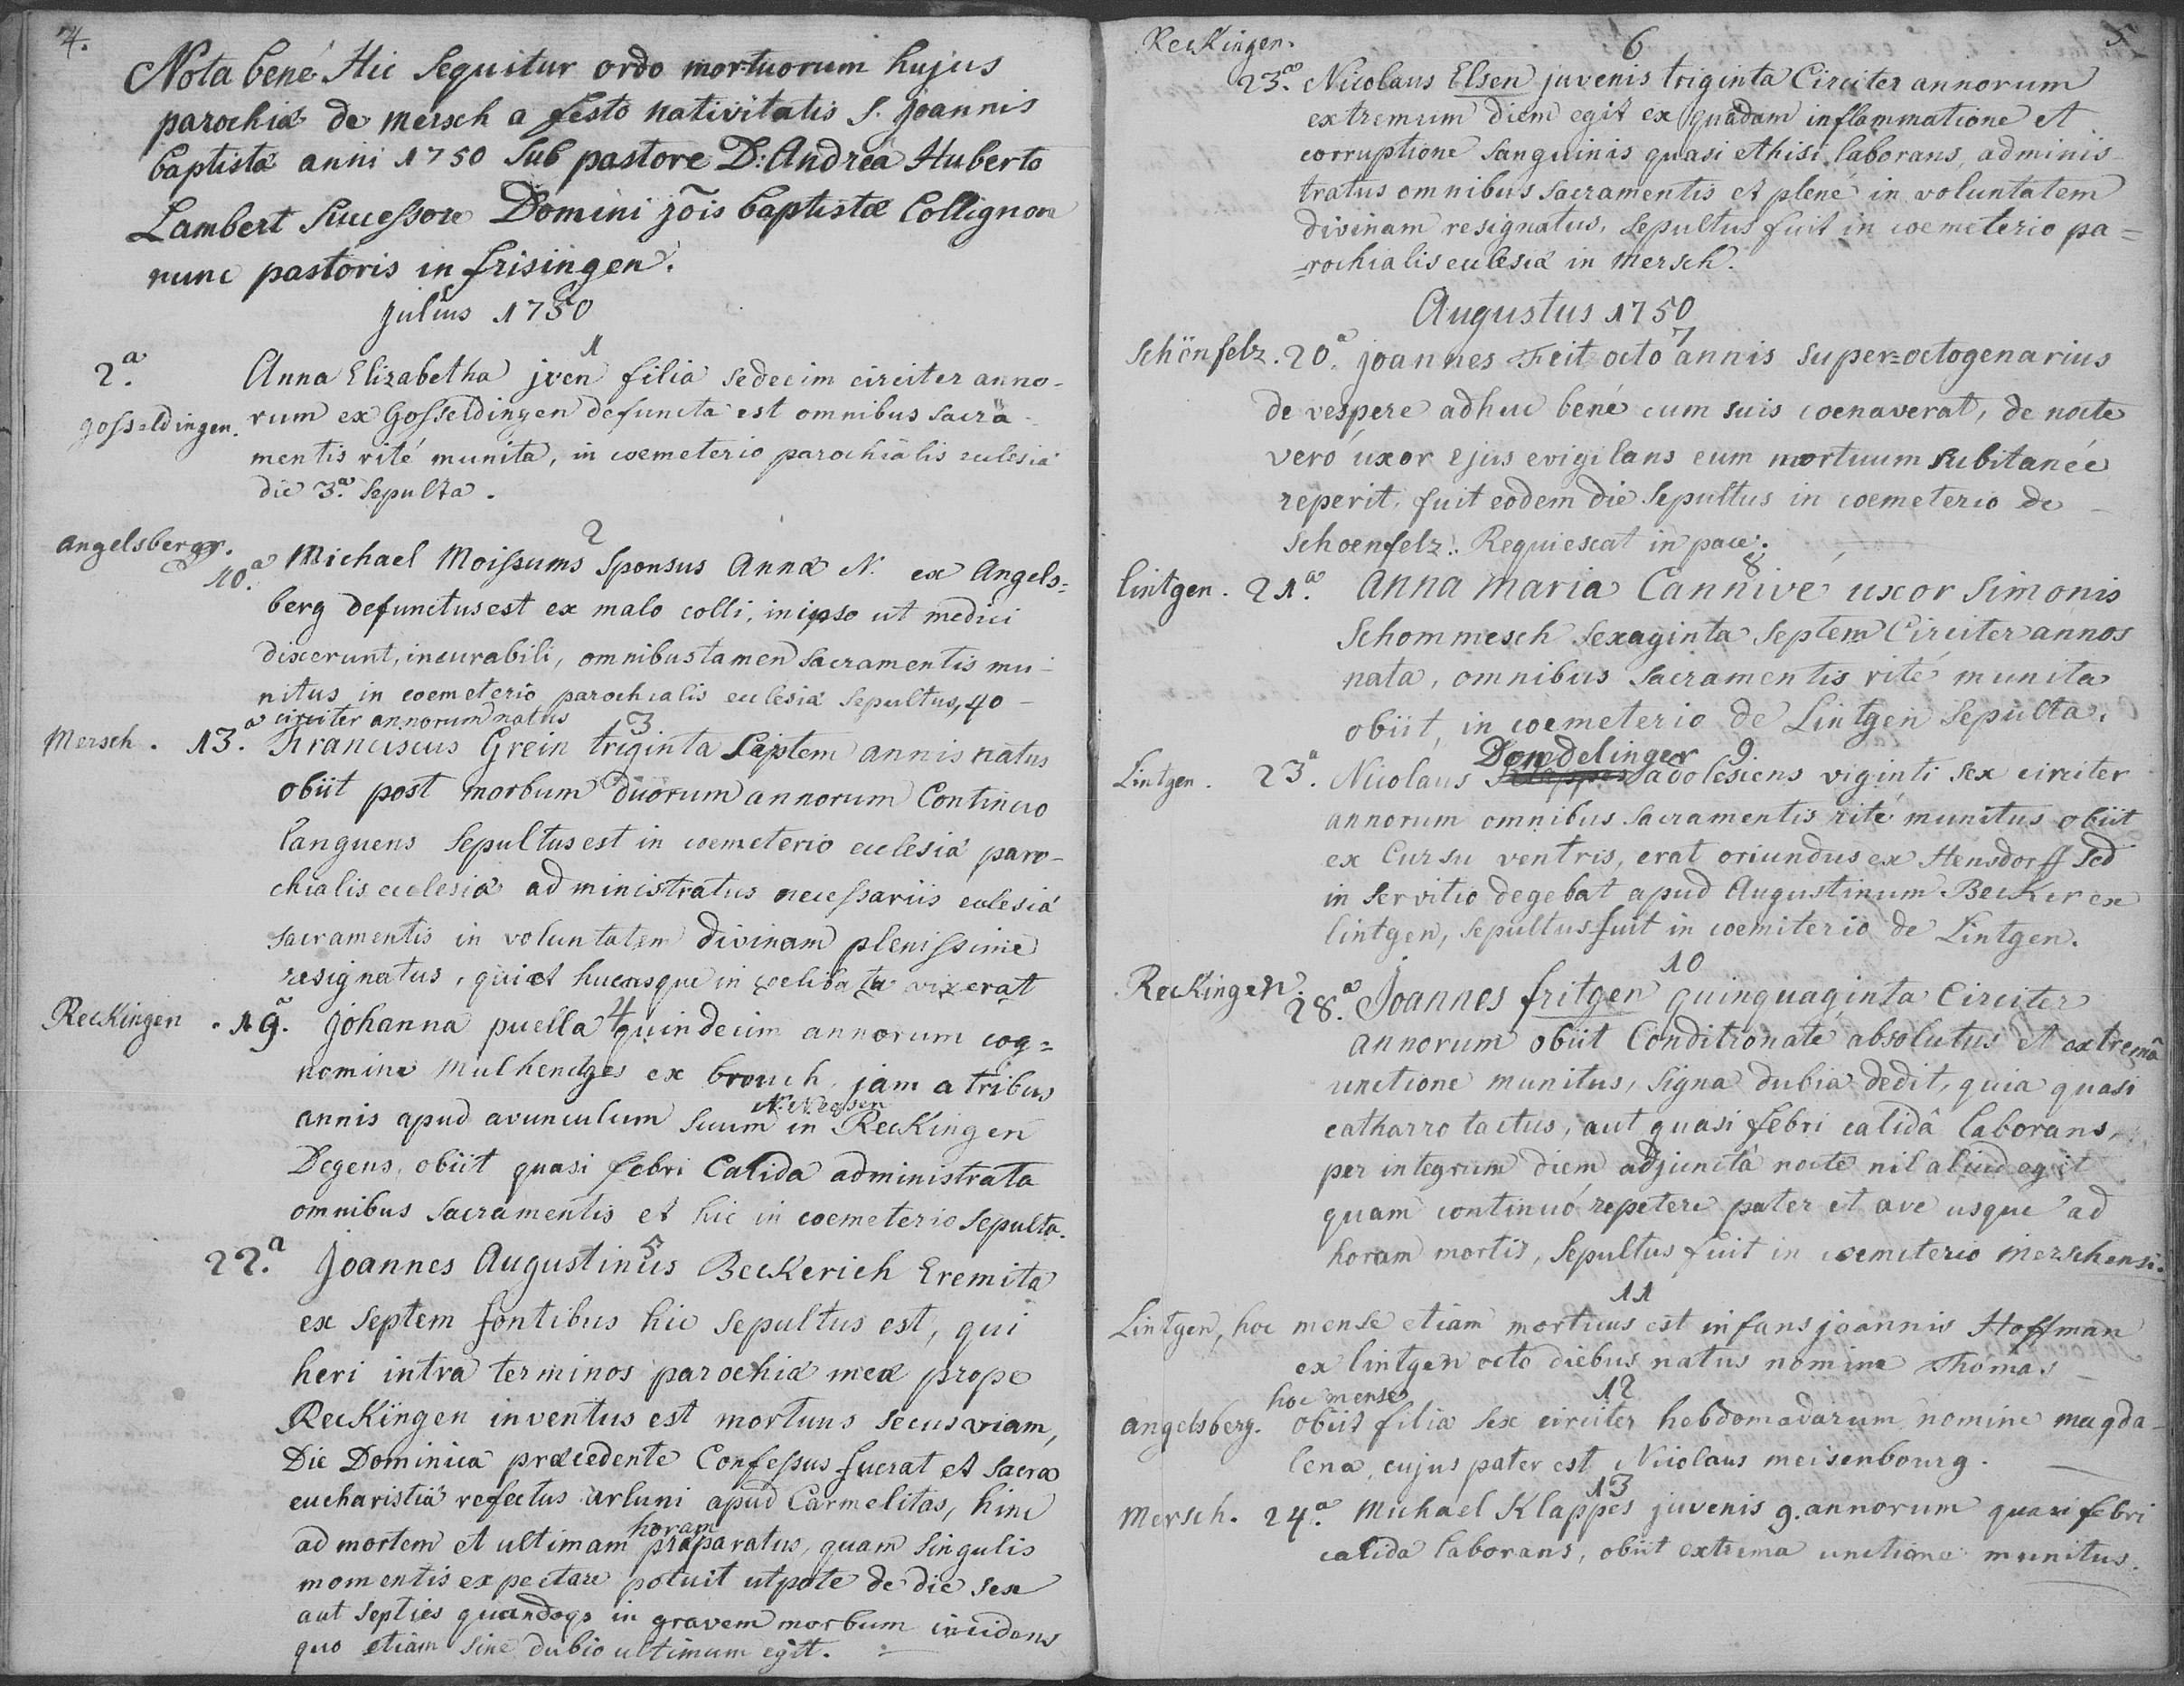 4.
Nota bené Hic Sequitur ordo mortuorum hujus
parochiæ de mersch a festo nativitatis S. Joannis
baptistæ anni 1750 Sub pastore D: Andrea Huberto
Lambert Successore Domini jõis baptistæ Collignon
nunc pastoris in frisingen.
julius 1750
1
2.a Anna Elizabetha jven filia sedecim circiter anno-
gosseldingen. rum ex Gosseldingen defuncta est omnibus sacra-
mentis rité munita, in coemeterio parochialis eclesiæ
die 3.a Sepulta.
2
angelsberg. 10.a Michael Moissums Sponsus Annæ N. ex Angels=
berg defunctus est ex malo colli, in ipso ut medici
dixerunt, incurabili, omnibus tamen Sacramentis mu-
nitus in coemeterio parochialis eclesiæ Sepultus, 40-
circiter annorum natus
3
Mersch. 13.a Franciscus Grein triginta Septem annis natus
obiit post morbum duorum annorum Continuo
languens Sepultus est in coemeterio eclesiæ paro-
chialis eclesiæ administratus necessariis eclesiæ
sacramentis in voluntatem divinam plenissime
resignatus, qui et hucusque in coelibatu vixerat
4
Reckingen. 19.a Johanna puella quindecim annorum cog=
nomine Mulhendges ex brouch, jam a tribus
N. Neesen
annis apud avunculum Suum in Reckingen
Degens, obiit quasi febri Calida administrata
omnibus Sacramentis et hic in coemeterio Sepulta.
5
22.a Joannes Augustinus Beckerich Eremita
ex Septem fontibus hic Sepultus est, qui
heri intra terminos parochiæ meæ prope
Reckingen inventus est mortuus secus viam,
Die Dominica præcedente Confessus fuerat et Sacra
eucharistia refectus arluni apud Carmelitas, hinc
horam
ad mortem et ultimam præparatus, quam Singulis
momentis expectare potuit utpote de die sex
aut septies quandoqe in gravem morbum incidens
quo etiam Sine dubio ultimum egit.
5
Reckingen.
6
23.a Nicolaus Elsen juvenis triginta Circiter annorum
extremum diem egit ex quadam inflammatione et
corruptione Sanguinis quasi ethisi laborans, adminis-
tratus omnibus sacramentis et plené in voluntatem
divinam resignatus, Sepultus fuit in coemeterio pa=
=rochialis eclesiæ in Mersch.
Augustus 1750
7
Schönfelz. 20.a Joannes Feit octo annis super=octogenarius
de vespere adhuc bené cum suis coenaverat, de nocte
veró uxor ejus evigilans eum mortuum subitaneé
reperit, fuit eodem die Sepultus in coemeterio de
Schoenfelz. Requiescat in pace.
8
lintgen. 21.a Anna Maria Cannivé uxor Simonis
Schommesch Sexaginta Septem Circiter annos
nata, omnibus Sacramentis rité munita
obiit, in coemeterio de Lintgen Sepulta.
Dondelinger 9.
Lintgen. 23.a Nicolaus adolesens viginti sex circiter
annorum omnibus Sacramentis rité munitus obiit
ex Cursu ventris, erat oriundus ex Hensdorff Sed
in Servitio degebat apud Augustinum Becker ex
lintgen, Sepultus fuit in coemiterio de Lintgen.
10
Reckingen. 28.a Joannes fritgen quinquaginta Circiter
annorum obiit Conditionate absolutus et extremâ
unctione munitus, Signa dubia dedit, quia quasi
catharro tactus, aut quasi febri calidâ laborans,
per integrum diem adjuncta nocte nil aliud egit
quam continuó repetere pater et ave usque ad
horam mortis, Sepultus fuit in coemeterio merschensi.
11
Lintgen, hoc mense etiam mortuus est infans joannis Hoffman
ex lintgen octo diebus natus nomine Thomas
hoc mense 12
angelsberg. obiit filia Sex circiter hebdomadarum nomine magda-
lena, cujus pater est Nicolaus meisenbourg.
13
Mersch. 24.a Michael Klappes juvenis 9. annorum quasi febri
calida laborans, obiit extrema unctione munitus.